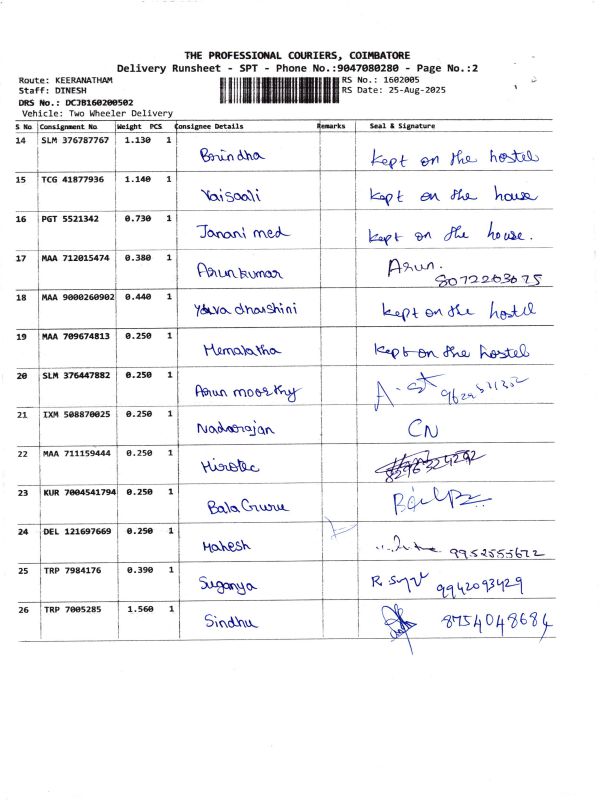 THE PROFESSIONAL COURIERS, COIMBATORE
Delivery Runsheet - SPT - Phone No.:9047080280 - Page No.:2
Route: KEERANATHAM RS No.: 1602005
Staff: DINESH RS Date: 25-Aug-2025
DRS No.: DCJB160200502
Vehicle: Two Wheeler Delivery
S No Consignment No Weight PCS Consignee Details Remarks Seal & Signature
14 SLM 376787767 1.130 1 Brindha kept on the hostel
15 TCG 41877936 1.140 1 Vaisaali kept on the house
16 PGT 5521342 0.730 1 Janani med kept on the house.
17 MAA 712015474 0.380 1 Arunkumar Arun.
8072263675
18 MAA 9000260902 0.440 1 Yuva dharshini kept on the hostel
19 MAA 709674813 0.250 1 Hemalatha kept on the hostel
20 SLM 376447882 0.250 1 Arun moorthy
21 IXM 508870025 0.250 1 Nadarajan CN
22 MAA 711159444 0.250 1 Hirotec
23 KUR 7004541794 0.250 1 Bala Guru
24 DEL 121697669 0.250 1 Mahesh 9952555672
25 TRP 7984176 0.390 1 Suganya 9942093429
26 TRP 7005285 1.560 1 Sindhu 8754048684